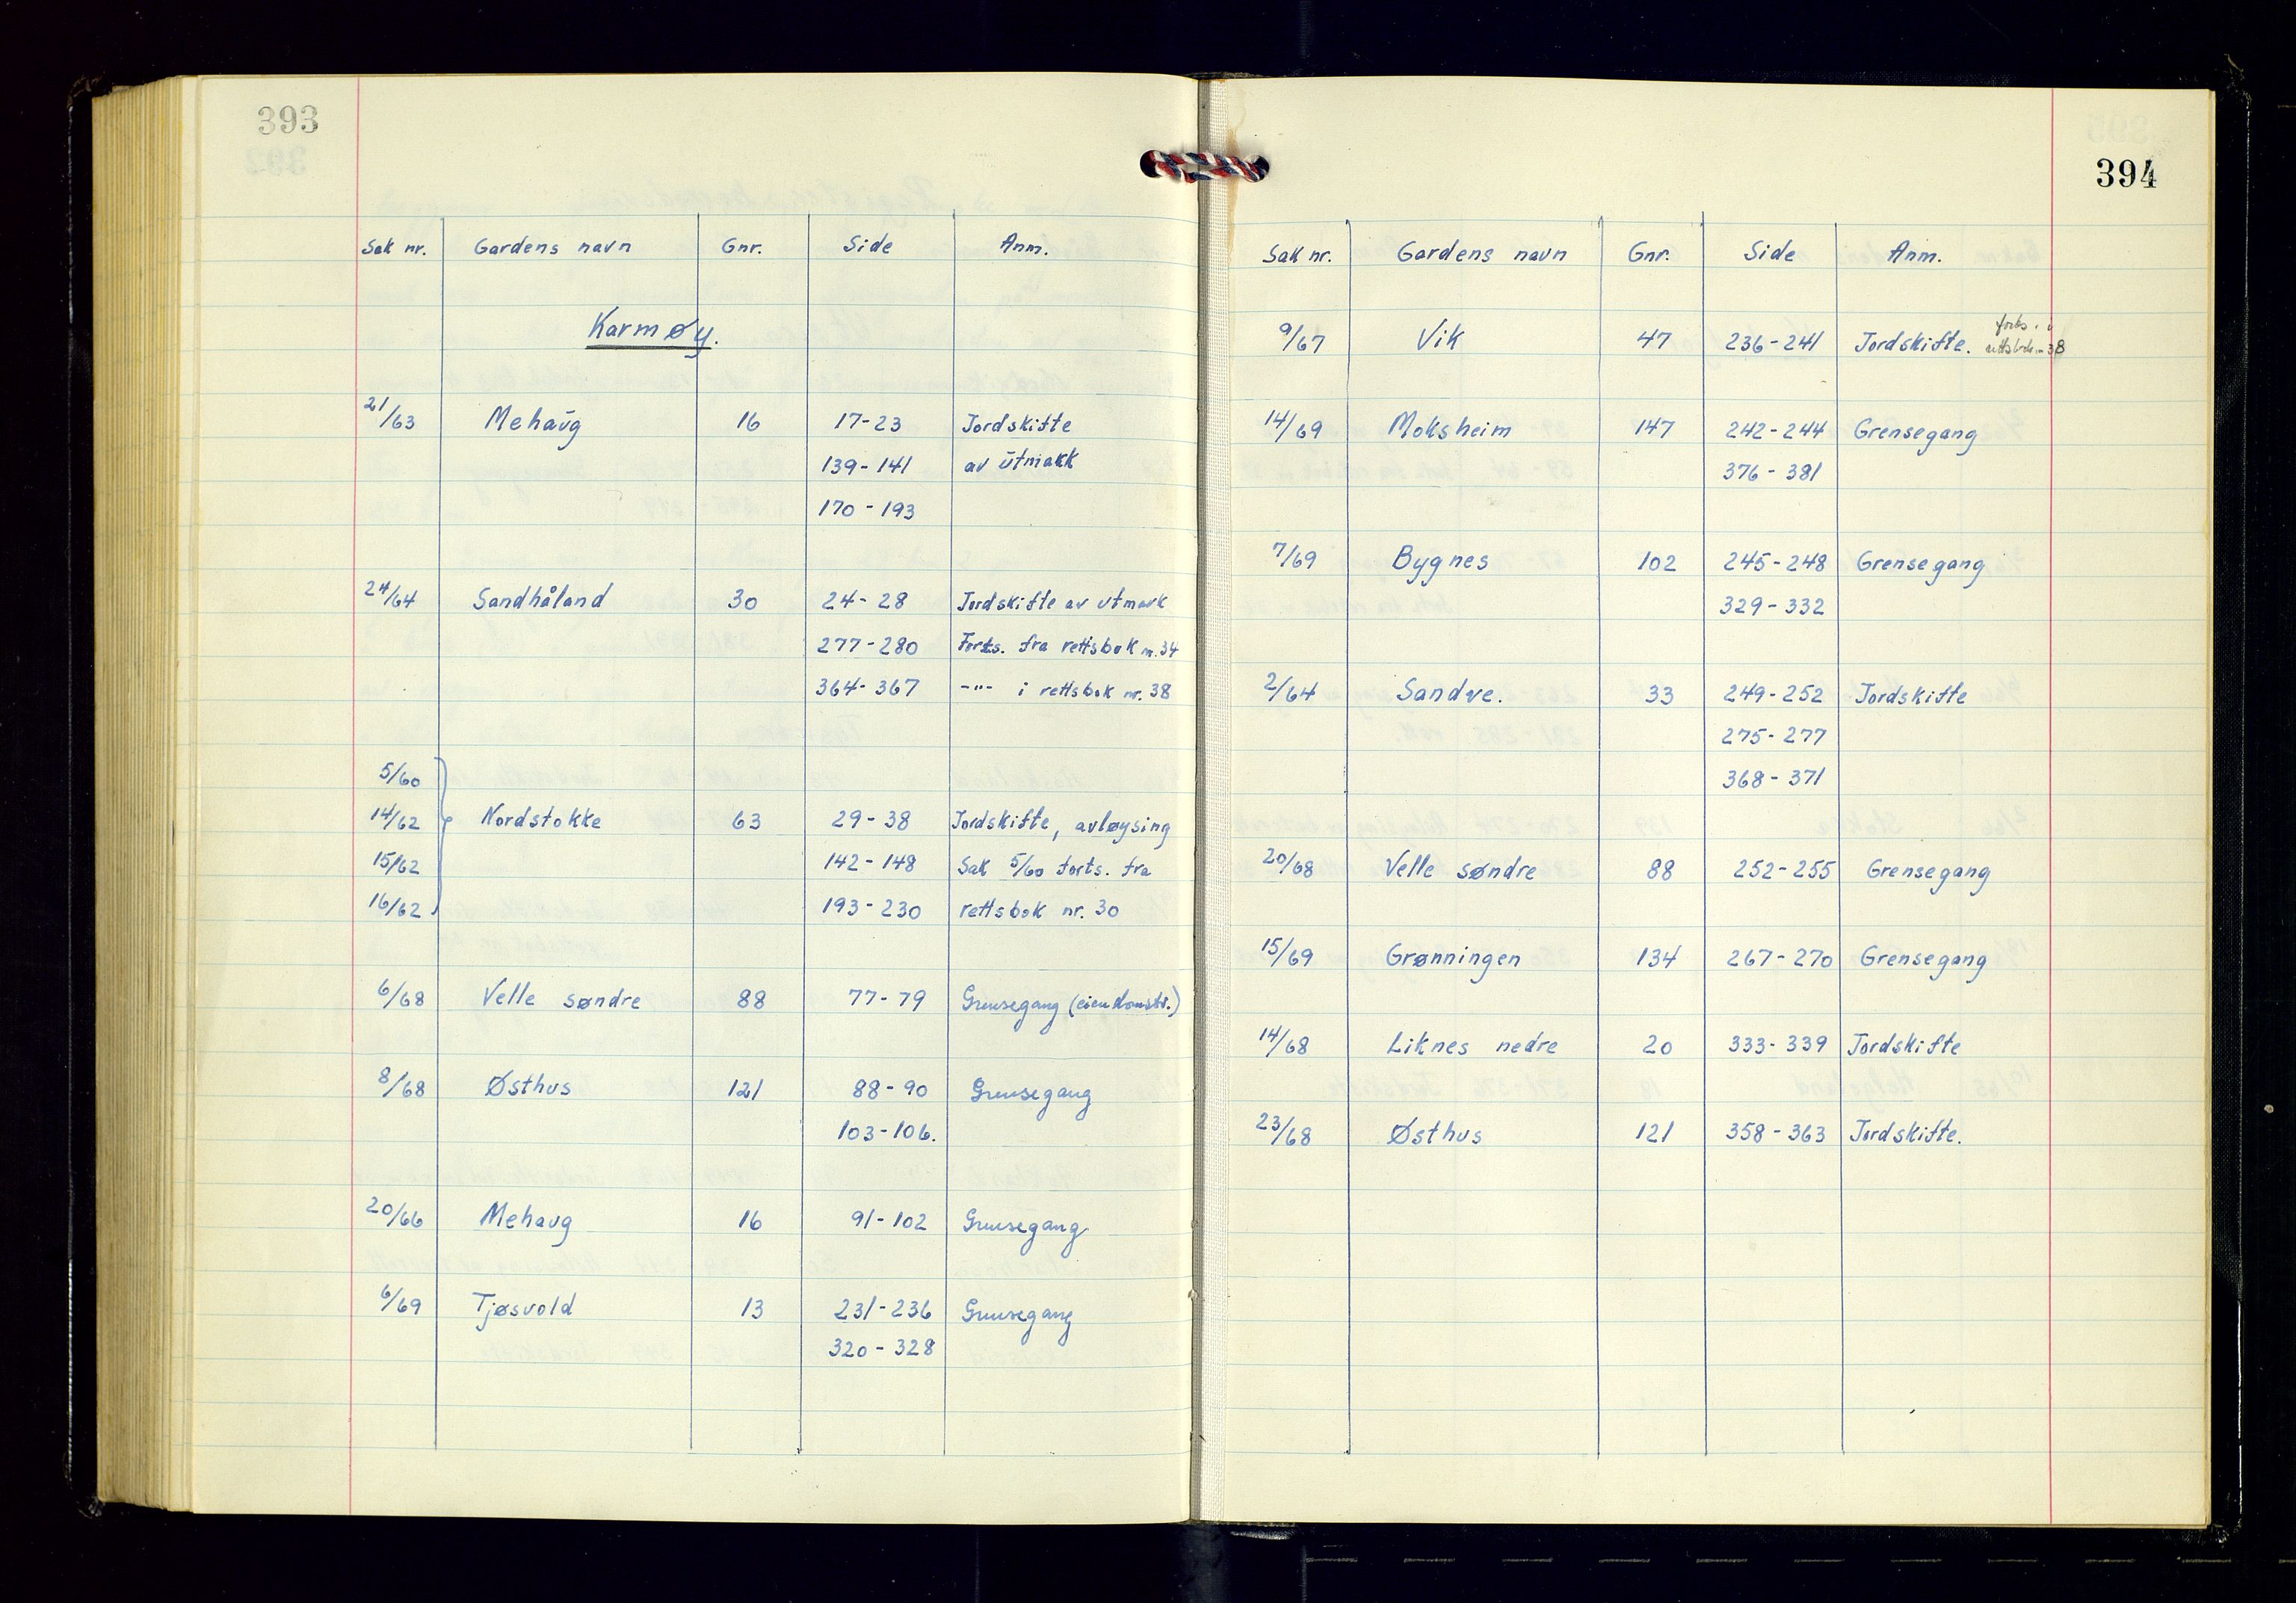 393
Sak nr. Gardens navn Gnr. Side Anm.
Karmøy.
21/63 Mehaūg 16 17-23 Jordskifte
139-141 av ūtmark
170-193
24/64 Sandhåland 30 24-28 Jordskifte av utmark
277-280 Forts. fra rettsbok nr. 34
364-367 -"- i rettsbok nr. 38
5/60
14/62 Nordstokke 63 29-38 Jordskifte, avløysing
15/62 142-148 Sak 5/60 forts. fra
16/62 193-230 rettsbok nr. 30
6/68 Velle søndre 88 77-79 Grensegang (eiendomstv.)
8/68 Østhus 121 88-90 Grensegang
103-106.
20/66 Mehaug 16 91-102 Grensegang
6/69 Tjøsvold 13 231-236 Grensegang
320-328
394
Sak nr. Gardens navn Gnr. Side Anm.
9/67 Vik 47 236-241 Jordskifte. forts. i
rettsbok nr. 38
14/69 Moksheim 147 242-244 Grensegang
376-381
7/69 Bygnes 102 245-248 Grensegang
329-332
2/64 Sandve. 33 249-252 Jordskifte
275-277
368-371
20/68 Velle søndre 88 252-255 Grensegang
15/69 Grønningen 134 267-270 Grensegang
14/68 Liknes nedre 20 333-339 Jordskifte
23/68 Østhus 121 358-363 Jordskifte.